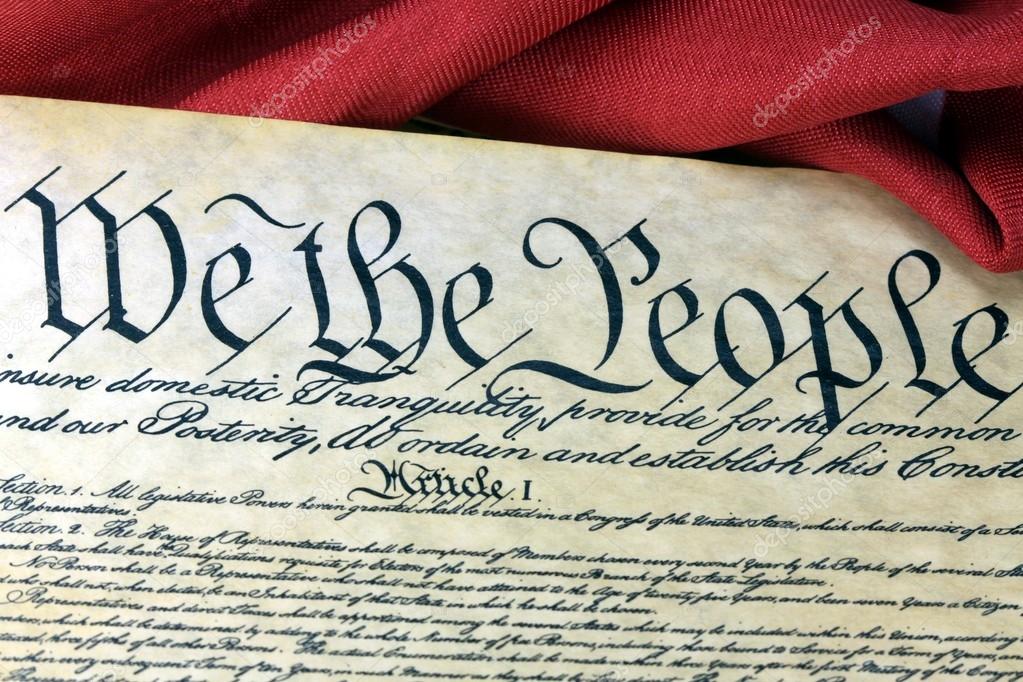 We the People
nsure domestic Tranquility, provide for the common
nd our Posterity, do ordain and establish this Const
Article. I.
Section. 1. All legislative Powers herein granted shall be vested in a Congress of the United States, which shall consist of a Se
Representatives.
Section. 2. The House of Representatives shall be composed of Members chosen every second Year by the People of the several
each State shall have the Qualifications requisite for Electors of the most numerous Branch of the State Legislature.
No Person shall be a Representative who shall not have attained to the Age of twenty five Years, and been seven Years a Citizen
who shall not, when elected, be an Inhabitant of that State in which he shall be chosen.
Representatives and direct Taxes shall be apportioned among the several States which may be included within this Union, according
which shall be determined by adding to the whole Number of free Persons, including those bound to Service for a Term of Years, and
three fifths of all other Persons. The actual Enumeration shall be made within three Years after the first Meeting of the Cong
within every subsequent Term of ten Years, in such Manner as they shall
depositphotos